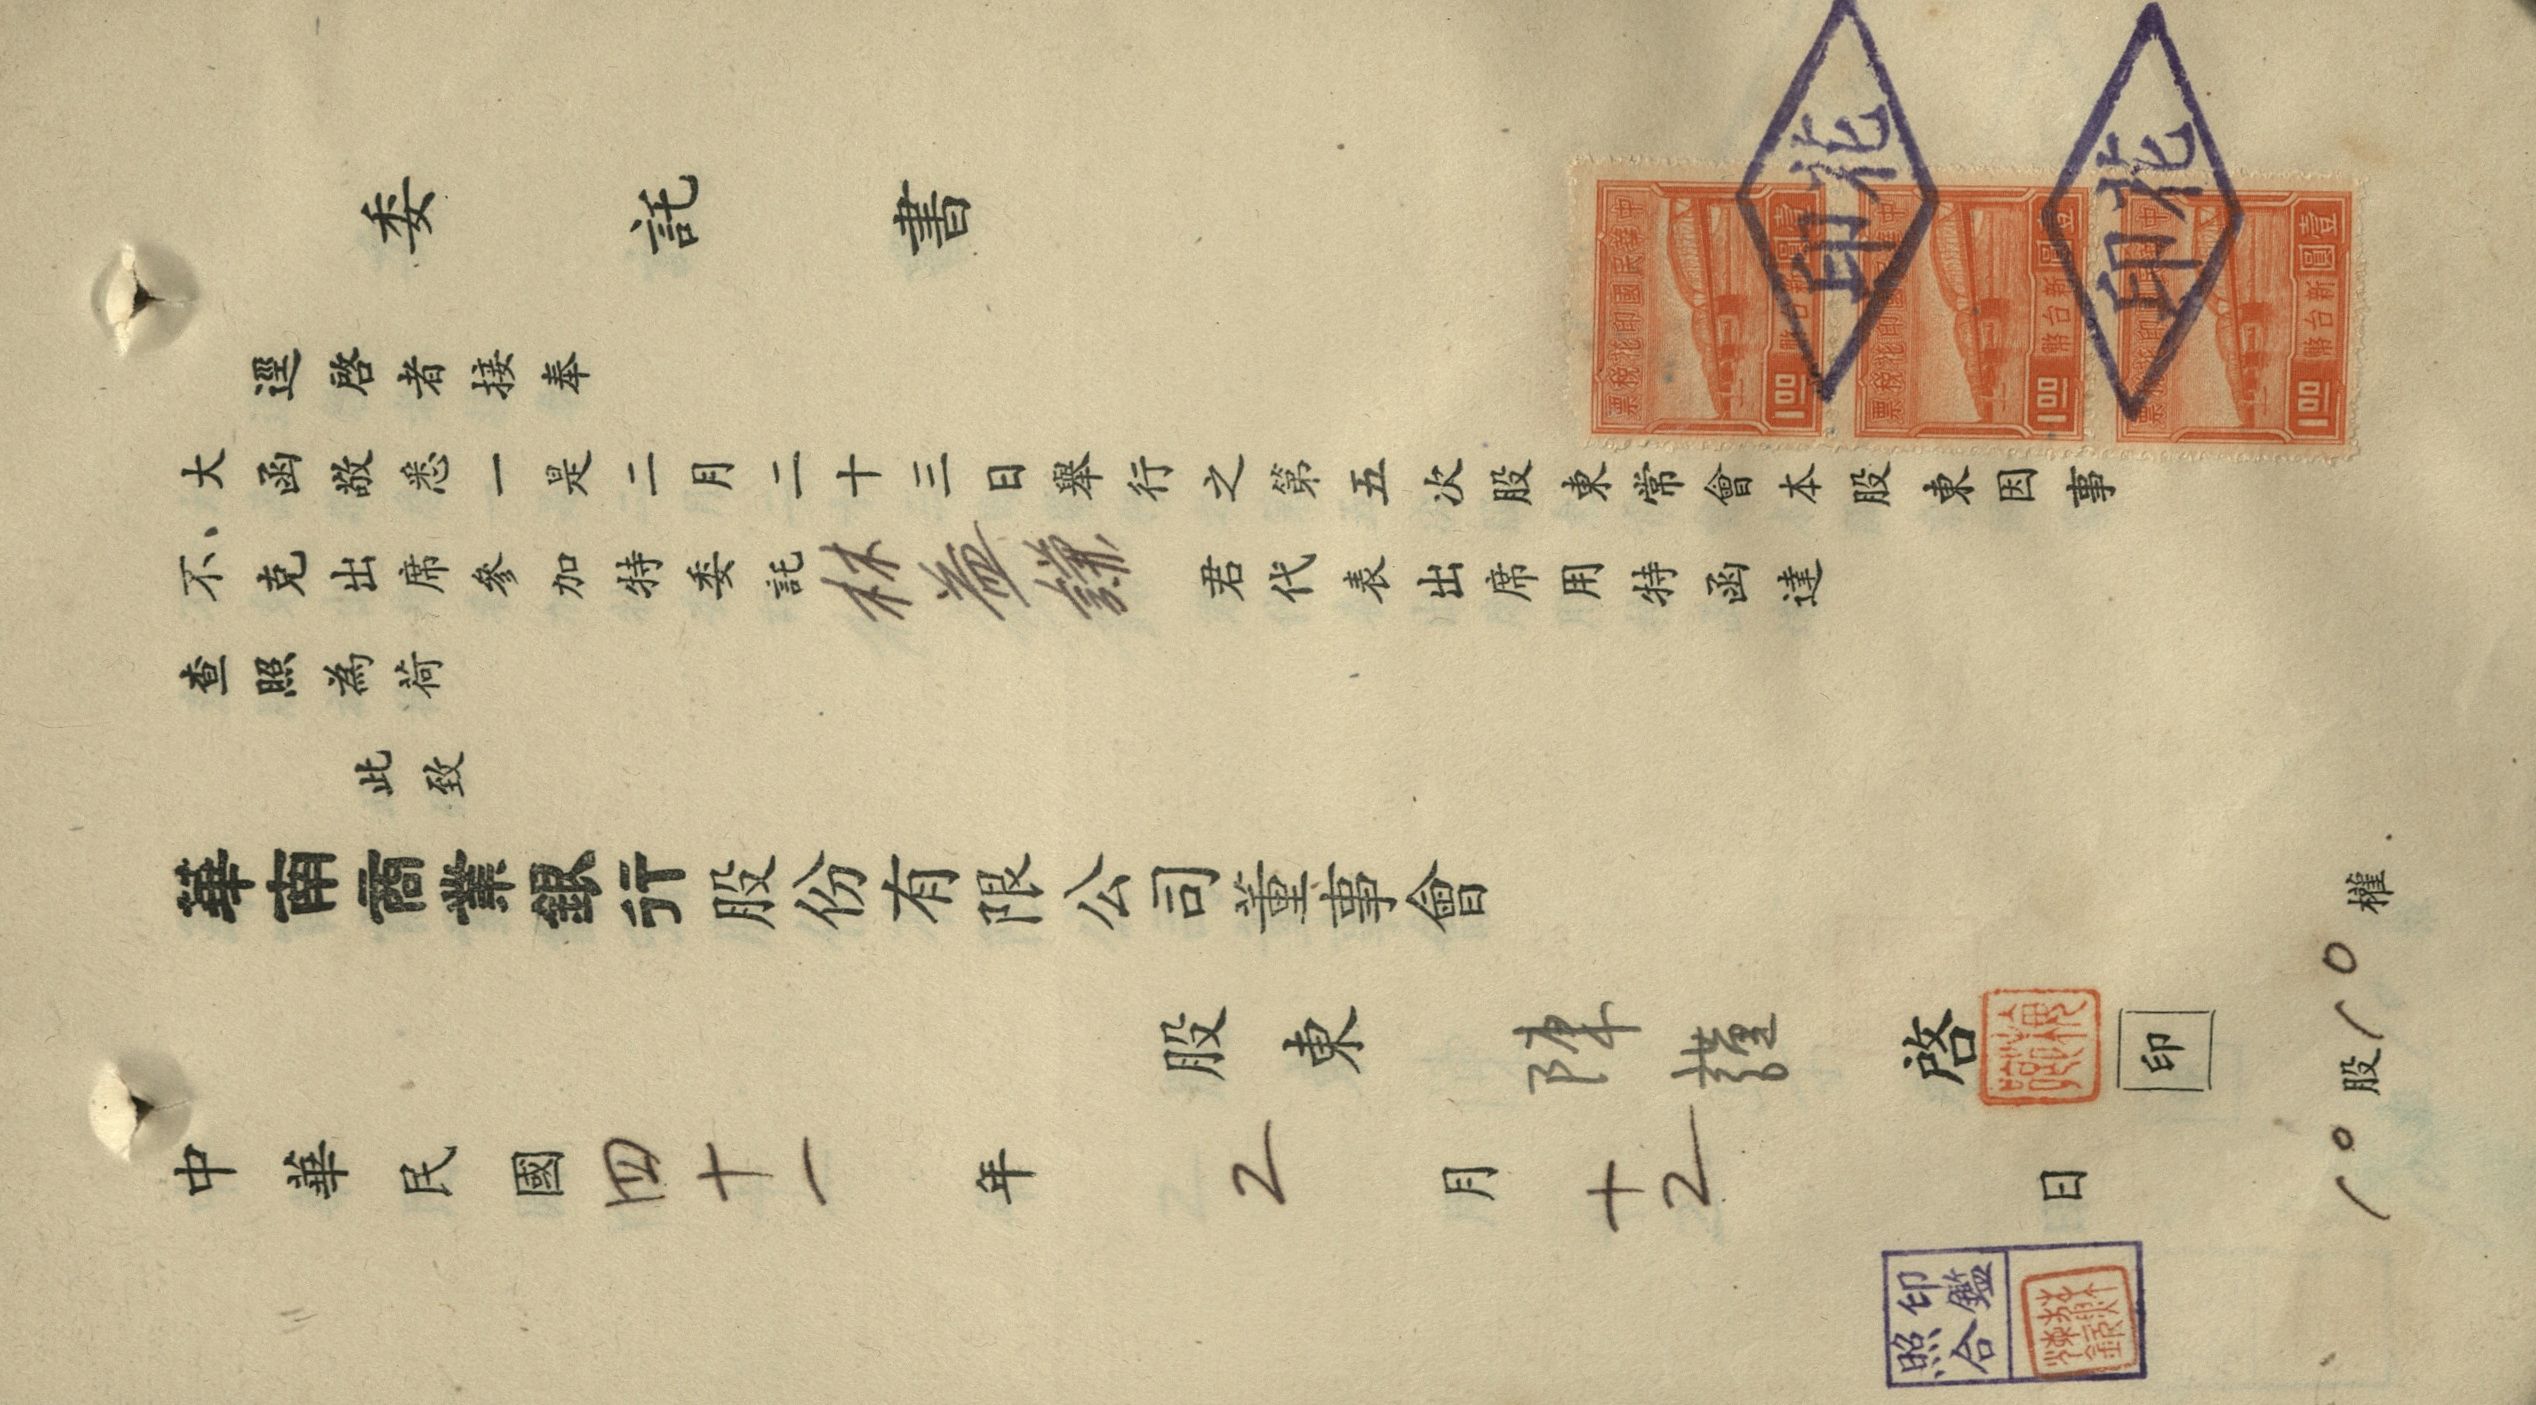 委託書
逕啓者接奉
大函敬悉一是二月二十三日舉行之第五次股東常會本股東因事
不、克出席參加特委託林益謙君代表出席用特函達
查照為荷
此致
華南商業銀行股份有限公司董事會
股東 陳 啓 印
中華民國四十一年2月十2日
100股10權
中華民國印花稅票
新台幣壹圓
1.00
中華民國印花稅票
新台幣壹圓
1.00
中華民國印花稅票
新台幣壹圓
1.00
印花
印花
印鑑
照合